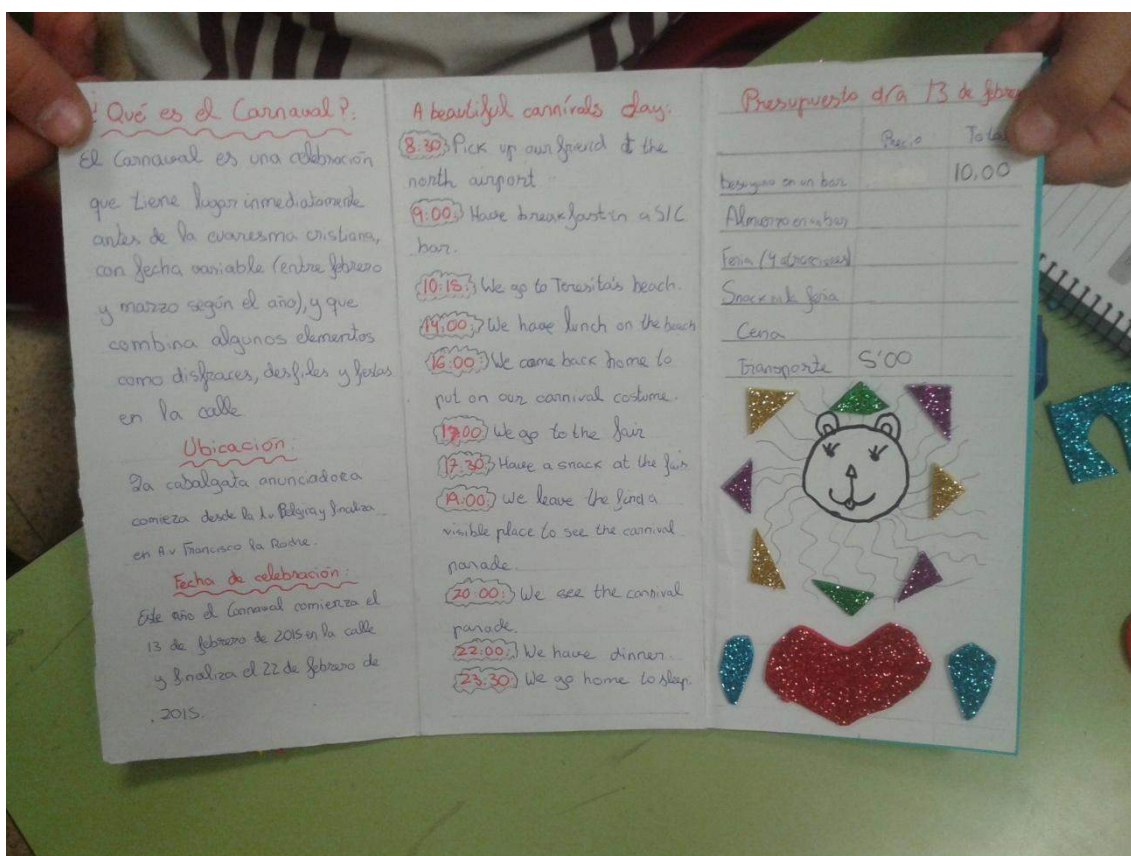 ¿Qué es el Carnaval?:
El Carnaval es una celebración
que tiene lugar inmediatamente
antes de la cuaresma cristiana,
con fecha variable (entre febrero
y marzo según el año), y que
combina algunos elementos
como disfraces, desfiles y fiestas
en la calle
Ubicación:
La cabalgata anunciadora
comieza desde la Av Belgica y finaliza
en Av Francisco la Roche.
Fecha de celebración:
Este año el Carnaval comienza el
13 de febrero de 2015 en la calle
y finaliza el 22 de febrero de
2015.
A beautiful carnivals day:
8:30: Pick up our friend at the
north airport
9:00: Have breakfast in a S/C
bar.
10:15: We go to Teresita's beach.
14:00: We have lunch on the beach
16:00: We come back home to
put on our carnival costume.
17:00 We go to the fair
17:30: Have a snack at the fair
19:00: We leave the find a
visible place to see the carnival
parade.
20:00: We see the carnival
parade.
22:00: We have dinner.
23:30: We go home to sleep.
Presupuesto día 13 de
Precio Total
en un bar 10,00
Almuerzo en un bar
Feria (y atracciones)
Snack en la feria
Cena
Transporte 5'00